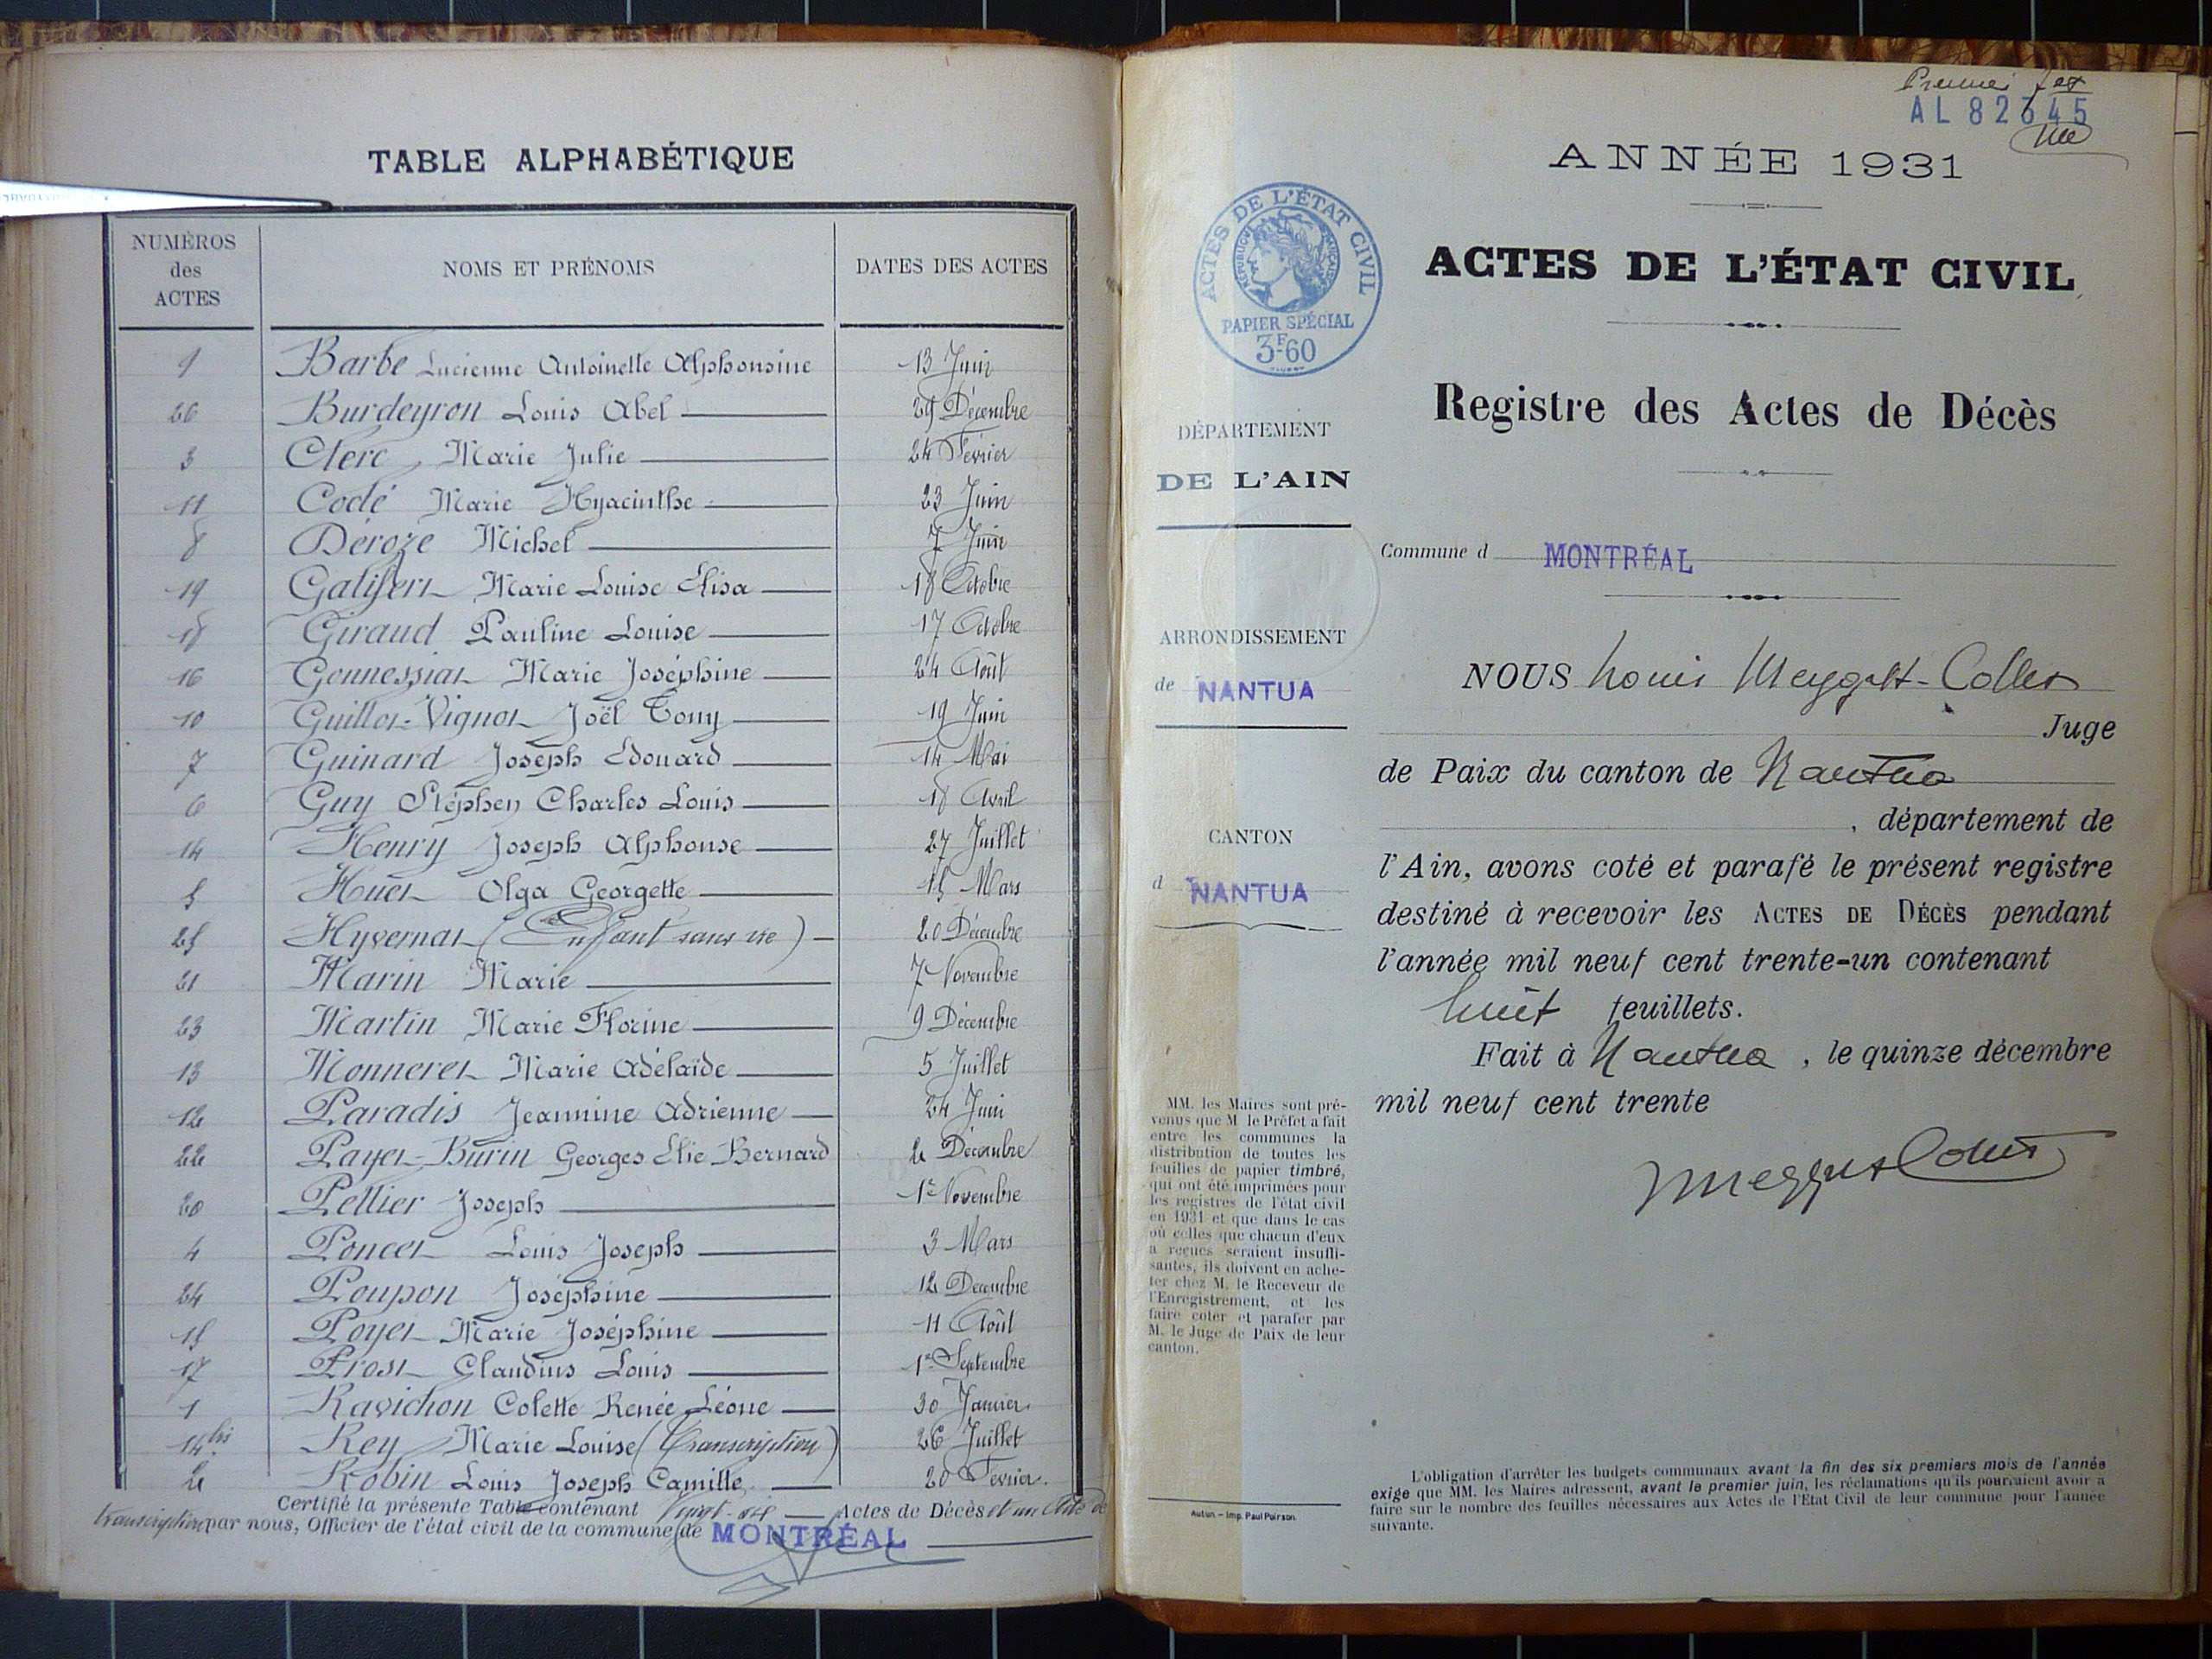 TABLE ALPHABÉTIQUE
NUMÉROS des ACTES NOMS ET PRÉNOMS DATES DES ACTES
9 Barbe Lucienne Antoinette Alphonsine 13 Juin
26 Burdeyron Louis Abel 29 Décembre
3 Clerc, Marie Julie 24 Février
11 Codé Marie Hyacinthe 23 Juin
8 Déroze Michel 7 Juin
19 Galifert Marie Louise Elisa 18 Octobre
18 Giraud Pauline Louise 17 Octobre
16 Gonnessiat Marie Joséphine 24 Août
10 Guillot-Vignot Joël Tony 19 Juin
7 Guinard Joseph Edouard 14 Mai
6 Guy Stéphen Charles Louis 18 Avril
14 Henry Joseph Alphonse 27 Juillet
5 Huet Olga Georgette 15 Mars
25 Hyvernat (Enfant sans vie) 20 Décembre
21 Marin Marie 7 Novembre
23 Martin Marie Florine 9 Décembre
13 Monneret Marie Adélaïde 5 Juillet
12 Paradis Jeannine Adrienne 24 Juin
22 Payet-Burin Georges Elie Bernard 2 Décembre
20 Pellier Joseph 1er Novembre
4 Poncet Louis Joseph 3 Mars
24 Poupon Joséphine 12 Décembre
15 Poyet Marie Joséphine 11 Août
17 Prost Claudius Louis 1er Septembre
1 Ravichon Colette Renée Léone 30 Janvier
14 bis Rey Marie Louise (Transcription) 26 Juillet
2 Robin Louis Joseph Camille 20 Février
Certifié la présente Table contenant Vingt-six Actes de Décès et un Acte de
transcription par nous, Officier de l'état civil de la commune de MONTRÉAL
Premier
AL 82645
ANNÉE 1931
ACTES DE L'ÉTAT CIVIL
RÉPUBLIQUE FRANÇAISE
PAPIER SPÉCIAL
3F60
ACTES DE L'ÉTAT CIVIL
Registre des Actes de Décès
DÉPARTEMENT
DE L'AIN
Commune d MONTRÉAL
ARRONDISSEMENT
de NANTUA
CANTON
d NANTUA
MM. les Maires sont pré-
venus que M le Préfet a fait
entre les communes la
distribution de toutes les
feuilles de papier timbré,
qui ont été imprimées pour
les registres de l'état civil
en 1931 et que dans le cas
où celles que chacun d'eux
a reçues seraient insuffi-
santes, ils doivent en ache-
ter chez M. le Receveur de
l'Enregistrement, et les
faire coter et parafer par
M. le Juge de Paix de leur
canton.
Autun. – Imp. Paul Poirson
NOUS Louis
Juge
de Paix du canton de Nantua
, département de
l'Ain, avons coté et parafé le présent registre
destiné à recevoir les ACTES DE DÉCÈS pendant
l'année mil neuf cent trente-un contenant
huit feuillets.
Fait à Nantua, le quinze décembre
mil neuf cent trente
L'obligation d'arrêter les budgets communaux avant la fin des six premiers mois de l'année
exige que MM. les Maires adressent, avant le premier juin, les réclamations qu'ils pourraient avoir à
faire sur le nombre des feuilles nécessaires aux Actes de l'Etat Civil de leur commune pour l'année
suivante.